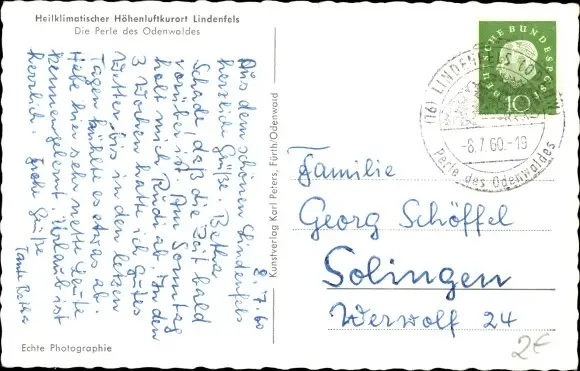 Heilklimatischer Höhenluftkurort Lindenfels
Die Perle des Odenwaldes
8.7.60
Aus dem schönen Lindenfels
herzliche Grüße. Betha
Schade, daß die Zeit bald
vorüber ist. Am Sonntag
holt mich Rudi ab. In den
3 Wochen hatte ich gutes
Wetter, bis in den letzten
Tagen kühlte es etwas ab.
Habe hier sehr nette Leute
kennengelernt. Urlaub ist
herrlich. Frohe Grüße
Tante Betha
Echte Photographie
Kunstverlag Karl Peters, Fürth/Odenwald
DEUTSCHE BUNDESPOST
10
(16) LINDENFELS
-8.7.60.-19
Perle des Odenwaldes
Familie
Georg Schöffel
Solingen
Werwolf 24
2€